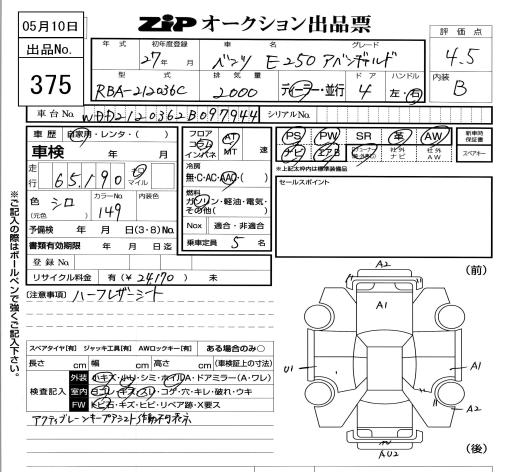 05月10日
ZiP オークション出品票
出品No.
375
評価点
4.5
内装
B
年式
初年度登録
27年 月
車名
ベンツ
グレード
E250 アバンギャルド
型式
RBA-212036C
排気量
2000
ディーラー・並行
ドア
4
ハンドル
左・右
車台No.
WDD2120362B097944
シリアルNo.
車歴
自家用・レンタ・( )
車検
年 月
走行
65,190
マイル
色
シロ
(元色)
カラーNo.
149
内装色
予備検 年 月 日(3・8)No.
書類有効期限 年 月 日迄
登録No.
リサイクル料金 有(¥ 24,170 ) 未
フロア
コラム
インパネ
AT
MT
速
冷房
無・C・AC・AAC・( )
燃料
ガソリン・軽油・電気・
その他( )
Nox
適合・非適合
乗車定員 5 名
PS
PW
SR
革
AW
ナビ
エアB
社外
ナビ
社外
AW
新車時
保証書
スペアキー
※上記太枠内は標準装備品
セールスポイント
(注意事項) ハーフレザーシート
スペアタイヤ[有] ジャッキ工具[有] AWロックキー[有] ある場合のみ○
長さ cm 幅 cm 高さ cm (車検証上の寸法)
検査記入
外装
小キズ・小凹・シミ・ホイルA・ドアミラー(A・ワレ)
室内
ヨゴレ・キズ・スリ・コゲ・穴・キレ・破れ・ウキ
FW
トビ石・キズ・ヒビ・リペア跡・X要ス
アクティブレーンキープアシスト作動不可表示
※ご記入の際はボールペンで強くご記入下さい。
(前)
A2
A1
U1
A1
A2
AU2
(後)